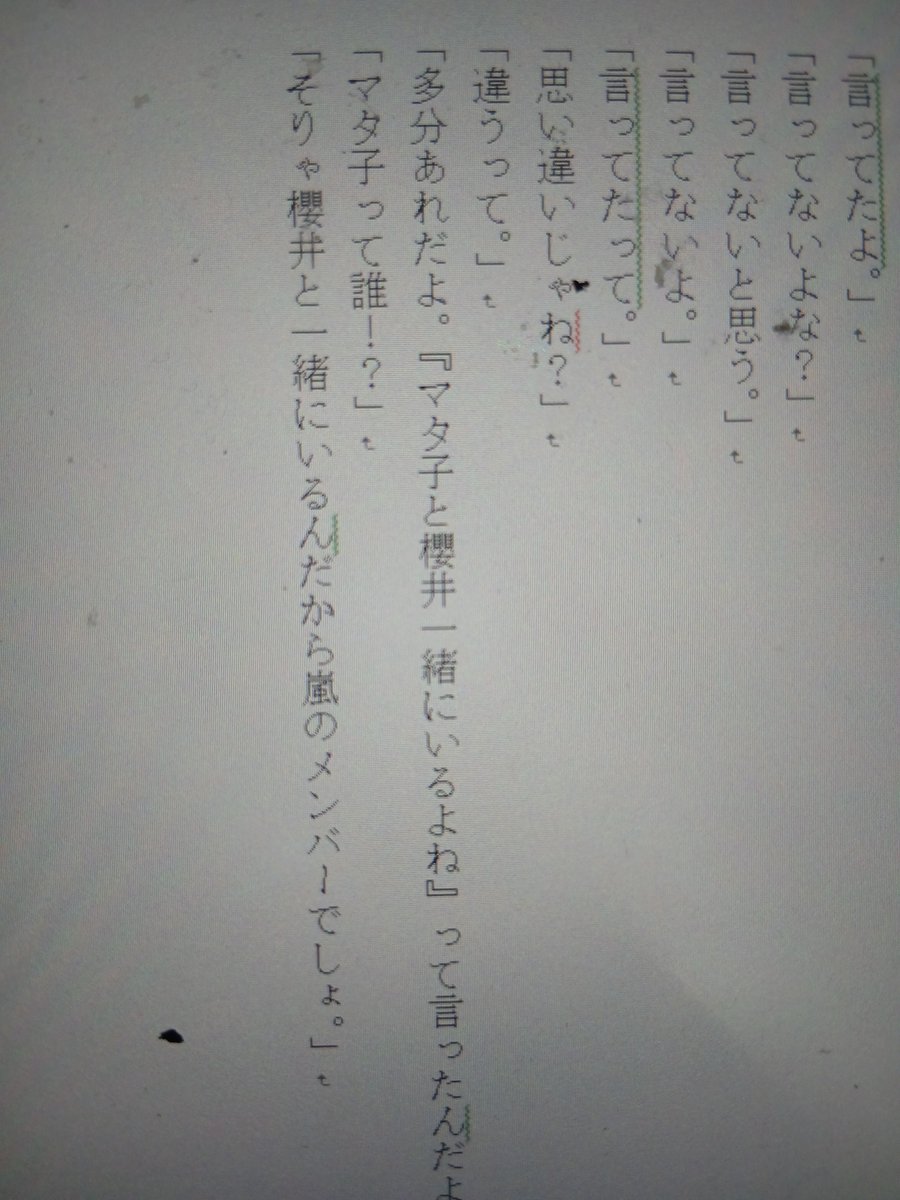 「言ってたよ。」
「言ってないよな?」
「言ってないと思う。」
「言ってないよ。」
「言ってたって。」
「思い違いじゃね?」
「違うって。」
「多分あれだよ。『マタ子と櫻井一緒にいるよね』って言ったんだよ
「マタ子って誰ー?」
「そりゃ櫻井と一緒にいるんだから嵐のメンバーでしょ。」